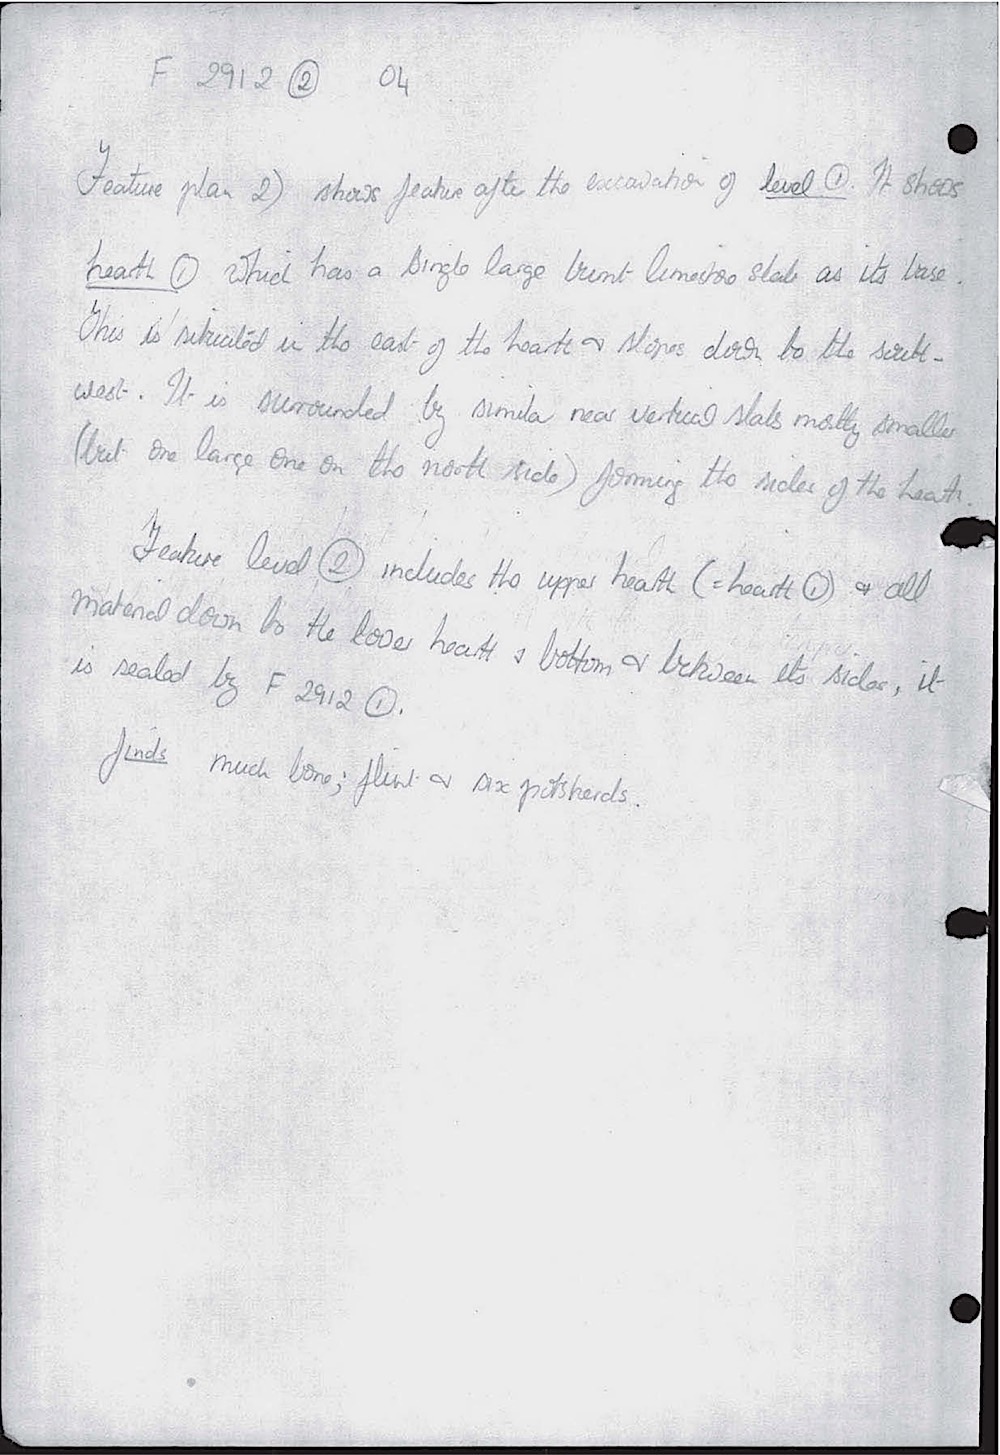 F 2912 ② 04
Feature plan 2) shows feature after the excavation of level ①. It shows
hearth ① which has a single large burnt limestone slab as its base.
This is situated in the east of the hearth & slopes down to the south-
west. It is surrounded by similar near vertical slabs mostly smaller
(but one large one on the north side) forming the sides of the hearth.
Feature level ② includes the upper hearth (= hearth ①) & all
material down to the lower hearth s bottom & between its sides, it
is sealed by F 2912 ①.
finds much bone; flint & six potsherds.